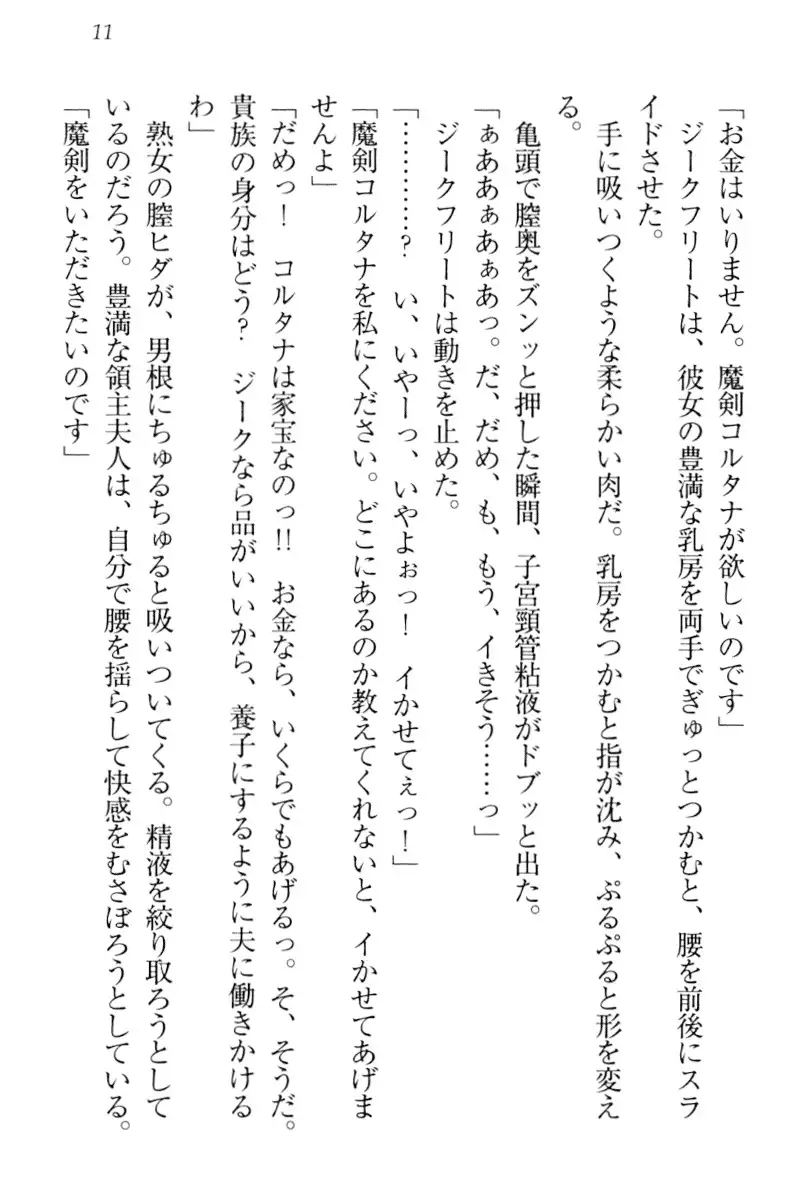 11
「お金はいりません。魔剣コルタナが欲しいのです」
　ジークフリートは、彼女の豊満な乳房を両手でぎゅっとつかむと、腰を前後にスラ
イドさせた。
　手に吸いつくような柔らかい肉だ。乳房をつかむと指が沈み、ぷるぷると形を変え
る。
　亀頭で膣奥をズンッと押した瞬間、子宮頸管粘液がドブッと出た。
「ぁああぁあぁあっ。だ、だめ、も、もう、イきそう……っ」
　ジークフリートは動きを止めた。
「…………？　い、いやーっ、いやよぉっ！　イかせてぇっ！」
「魔剣コルタナを私にください。どこにあるのか教えてくれないと、イかせてあげま
せんよ」
「だめっ！　コルタナは家宝なのっ!!　お金なら、いくらでもあげるっ。そ、そうだ。
貴族の身分はどう？　ジークなら品がいいから、養子にするように夫に働きかける
わ」
　熟女の膣ヒダが、男根にちゅるちゅると吸いついてくる。精液を絞り取ろうとして
いるのだろう。豊満な領主夫人は、自分で腰を揺らして快感をむさぼろうとしている。
「魔剣をいただきたいのです」